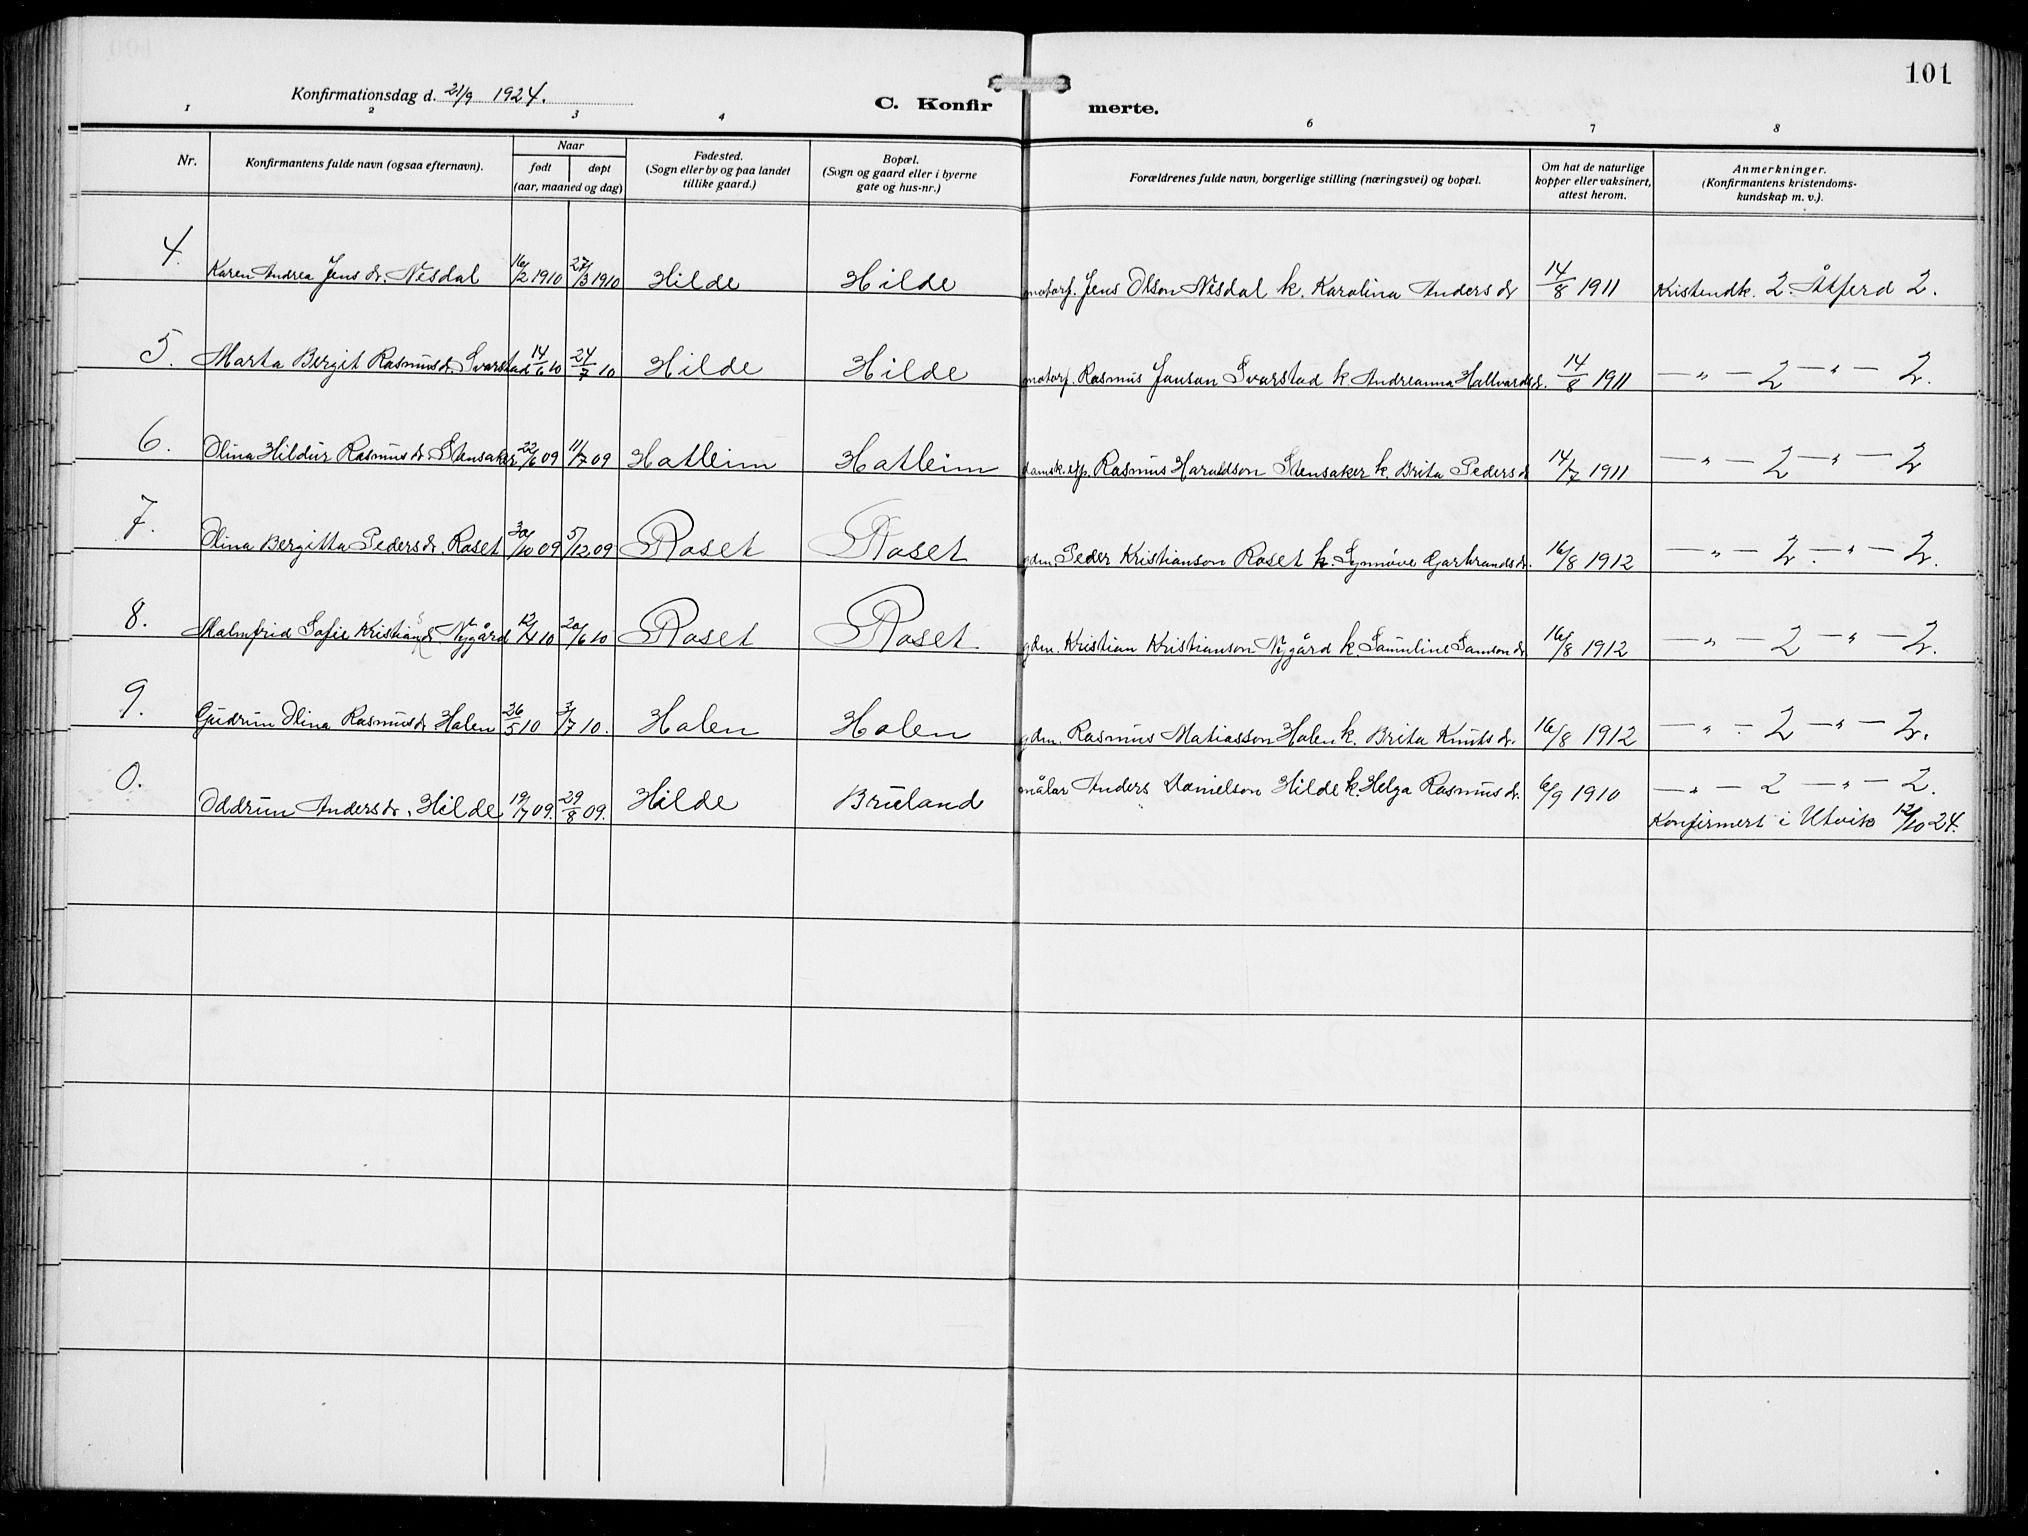 101
Konfirmationsdag d. 21/9 1924.
C. Konfirmerte.
1 2 3 4 6 7 8
Nr.
Konfirmantens fulde navn (ogsaa efternavn).
Naar
født døpt
(aar, maaned og dag)
Fødested.
(Sogn eller by og paa landet
tillike gaard.)
Bopæl.
(Sogn og gaard eller i byerne
gate og hus-nr.)
Forældrenes fulde navn, borgerlige stilling (næringsvei) og bopæl.
Om hat de naturlige
kopper eller vaksinert,
attest herom.
Anmerkninger.
(Konfirmantens kristendoms-
kundskap m. v.).
4. Karen Andrea Jens dr. Nesdal 16/2 1910 27/3 1910 Hilde Hilde Jens Olson Nesdal k. Karolina Anders dr 14/8 1911 Kristendk. 2. Åtferd 2.
5. Marta Bergit Rasmus dr. Svarstad 14/6 10 24/7 10 Hilde Hilde Rasmus Janson Svarstad k Andreanna Hallvards dr. 14/8 1911 — " — 2 — " — 2.
6. Olina Hildur Rasmus dr. Stensaker 22/6 09 11/7 09 Hatleim Hatleim Rasmus Haraldson Stensaker k. Brita Peders dr 14/7 1911 — " — 2 — " — 2
7. Olina Bergitta Peders dr. Roset 30/10 09 5/12 09 Roset Roset gdm. Peder Kristianson Roset k. Synnøve Garbrands dr. 16/8 1912 — " — 2. — " — 2.
8. Malmfrid Sofie Kristians dr Nygård 12/4 10 20/6 10 Roset Roset gdm. Kristian Kristianson Nygård k. Samuline Samson dr 16/8 1912 — " — 2 — " — 2.
9. Gudrun Olina Rasmus dr. Holen 26/5 10 3/7 10. Holen Holen gdm. Rasmus Matiasson Holen k. Brita Knuts dr. 16/8 1912 — " — 2 — " — 2.
0. Oddrun Anders dr. Hilde 19/7 09. 29/8 09. Hilde Bruland målar Anders Danielson Hilde k. Helga Rasmus dr. 6/9 1910 — " — 2 — " — 2.
Konfirmert i Utvik 12/10 24.